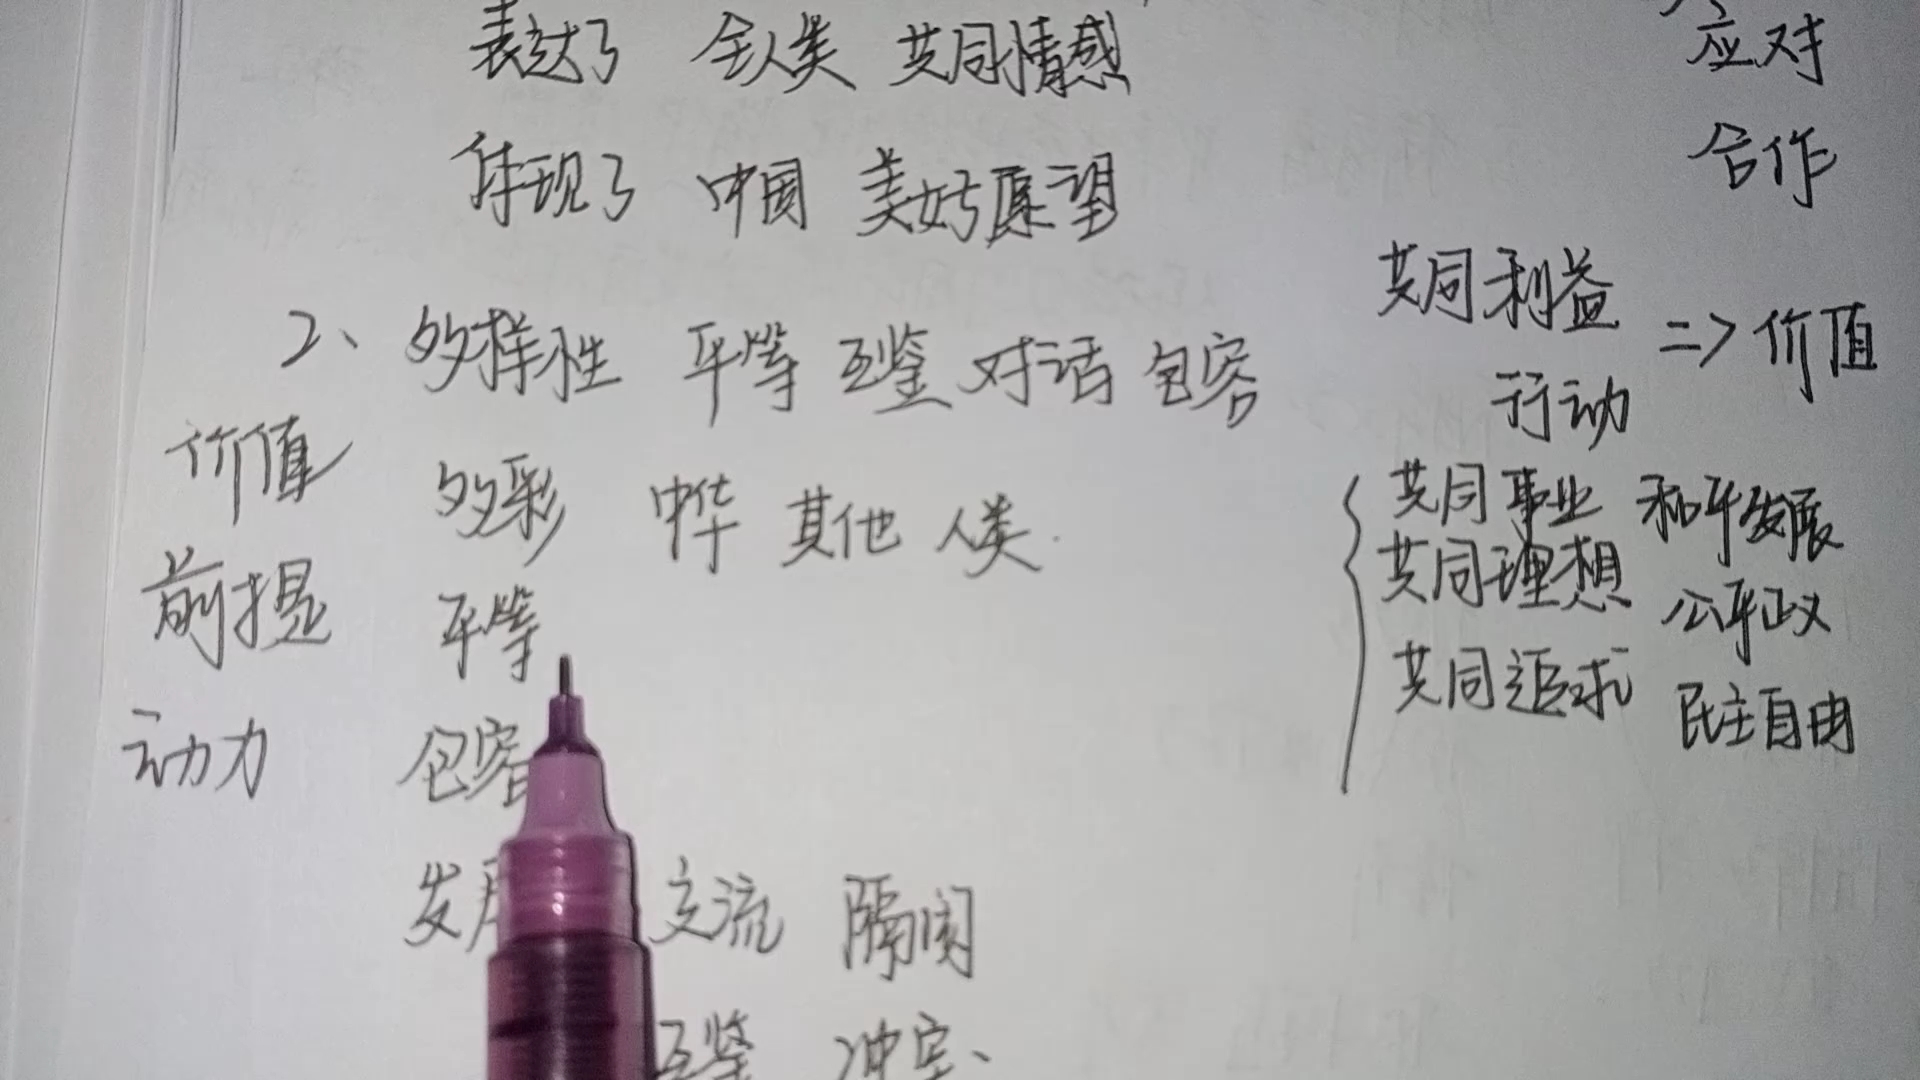 表达了 全人类 共同情感
体现了 中国 美好愿望
2、多样性 平等 互鉴 对话 包容
价值 多彩 中华 其他 人类.
前提 平等
动力 包容
发 交流 隔阂
互鉴 冲突、
应对
合作
共同利益
=> 价值
行动
共同事业 和平发展
共同理想 公平正义
共同追求 民主自由